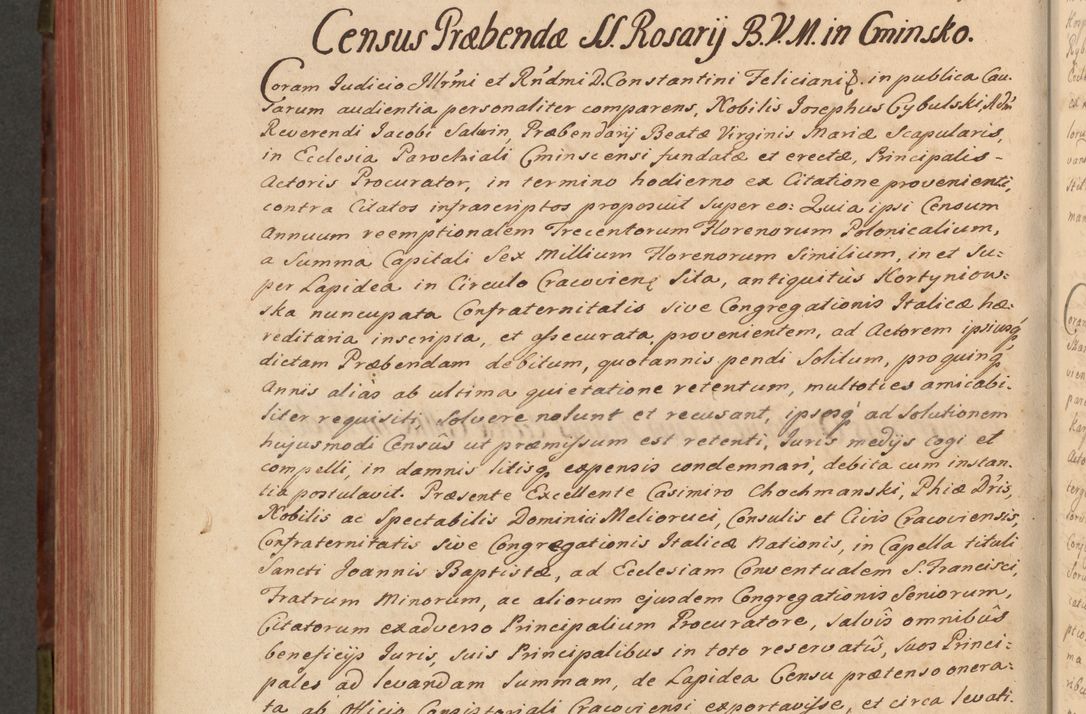 Census Præbendæ SS. Rosarij B.V.M. in Cminsko.
Coram Judicio Illr̃mi et Rñdmi D. Constantini Feliciani &. in publica Cau-
sarum audientia personaliter comparens, Nobilis Josephus Cybulski Adm̃
Reverendi Jacobi Salwin, Præbendarij Beatæ Virginis Mariæ Scapularis,
in Ecclesia Parochiali Cminscensi fundatæ et erectæ, Principalis-
Actoris Procurator, in termino hodierno ex Citatione provenienti,
contra Citatos infrascriptos proposuit super eo: Quia ipsi Censum
Annuum reemptionalem Trecentorum Florenorum Polonicalium,
a Summa Capitali Sex Millium Florenorum Similium, in et Su-
per Lapidea in Circulo Cracovienę Sita, antiquitùs Kortyniow-
ska nuncupata Confraternitatis sive Congregationis Italicæ hæ-
reditaria inscripta, et assecurata, provenientem, ad Actorem ipsiusq́
dictam Præbendam debitum, quotannis pendi Solitum, pro quinq́
Annis alias ab ultima quietatione retentum, multoties amicabi-
liter requisiti, Solvere nolunt et recusant, ipsosq́ ad Solutionem
hujusmodi Censûs ut præmissum est retenti, Juris medijs cogi et
compelli, in damnis litisq́ expensis condemnari, debita cum instan-
tia postulavit. Præsente Excellente Casimiro Chochmanski, Phiæ Dr̃is,
Nobilis ac Spectabilis Dominici Melioruci, Consulis et Civis Cracoviensis,
Confraternitatis sive Congregationis Italicæ Nationis, in Capella tituli
Sancti Joannis Baptistæ, ad Ecclesiam Conventualem S. Francisci,
Fratrum Minorum, ac aliorum ejusdem Congregationis Seniorum,
Citatorum exadverso Principalium Procuratore, salvis omnibus
beneficijs Juris, suis Principalibus in toto reservatis, suos Princi-
pales ad levandam Summam, de Lapidea Censu prætenso onera-
ta ab Officio Consistoriali Cracoviensi exportavisse, et circa levati-